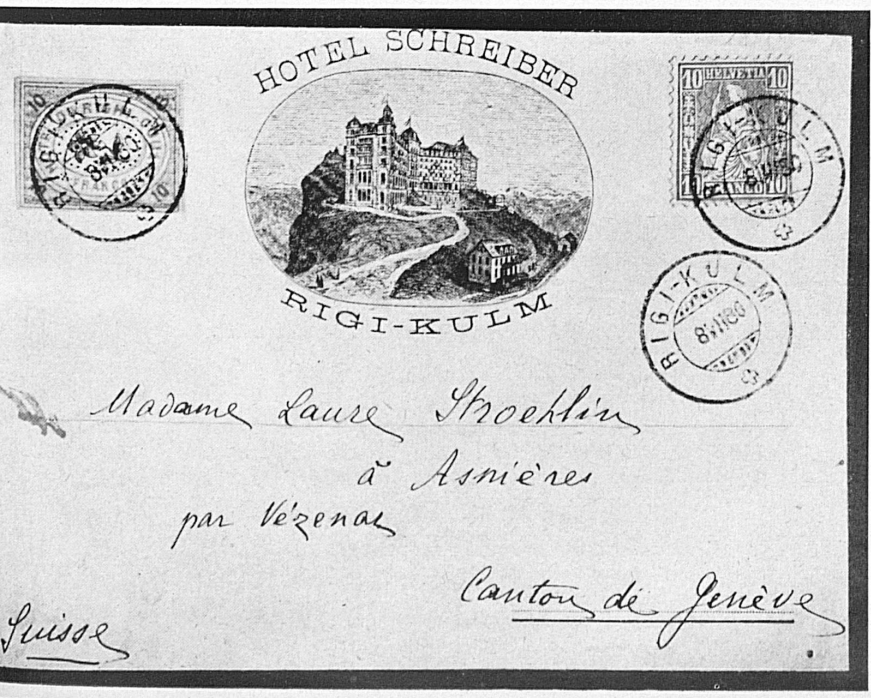 HOTEL SCHREIBER
RIGI-KULM
10 HELVETIA 10
10 FRANCO 10
RIGI-KULM
RIGI-KULM
RIGI-KULM
Madame Laure Stroehlin
à Asnières
par Vézenaz
Canton de Genève
Suisse